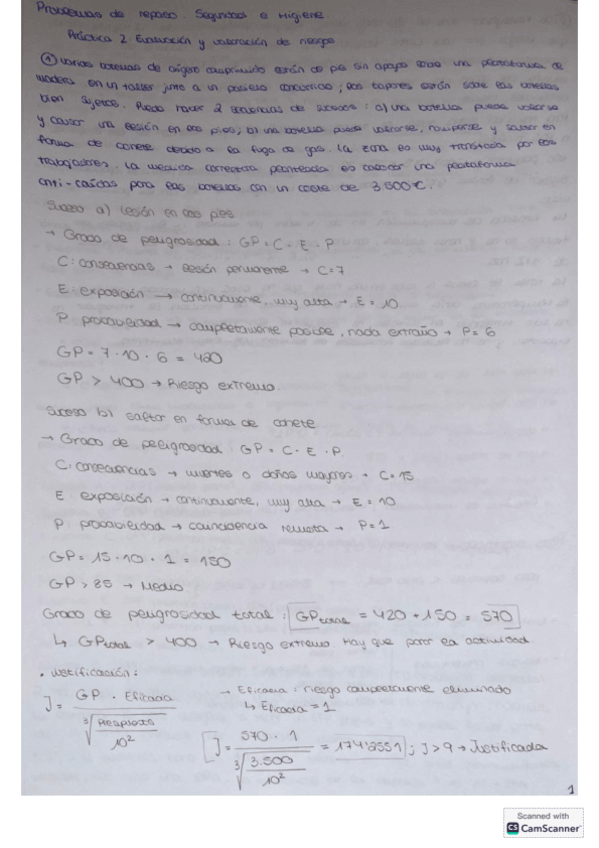 Problemas de repaso. Seguridad e Higiene
Práctica 2. Evaluación y valoración de riesgos
① Varias botellas de oxígeno comprimido están de pie sin apoyo sobre una plataforma de
madera en un taller junto a un pasillo concurrido; los tapones están sobre las botellas
bien sujetos. Puede haber 2 secuencias de sucesos: a) una botella puede volcarse
y causar una lesión en los pies; b) una botella puede volcarse, romperse y saltar en
forma de cohete debido a la fuga de gas. La zona es muy transitada por los
trabajadores. La medida correctora planteada es colocar una plataforma
anti-caídas para las botellas con un coste de 3.500€.
Suceso a) lesión en los pies
→ Grado de peligrosidad: GP = C · E · P
C: consecuencias → lesión permanente → C=7
E: exposición → continuamente, muy alta → E = 10
P: probabilidad → completamente posible, nada extraño → P= 6
GP = 7 · 10 · 6 = 420
GP > 400 → Riesgo extremo.
Suceso b) saltar en forma de cohete
→ Grado de peligrosidad: GP = C · E · P.
C: consecuencias → muertes o daños mayores → C=15
E: exposición → continuamente, muy alta → E = 10
P: probabilidad → coincidencia remota → P=1
GP = 15 · 10 · 1 = 150
GP > 85 → Medio
Grado de peligrosidad total: GPtotal = 420 + 150 = 570
↳ GPtotal > 400 → Riesgo extremo. Hay que parar la actividad
• Justificación:
J = GP · Eficacia / ∛(Respuesto / 10²)
→ Eficacia: riesgo completamente eliminado
↳ Eficacia = 1
J = 570 · 1 / ∛(3.500 / 10²) = 174'2551 ; J > 9 → Justificada
1
Scanned with
CS CamScanner